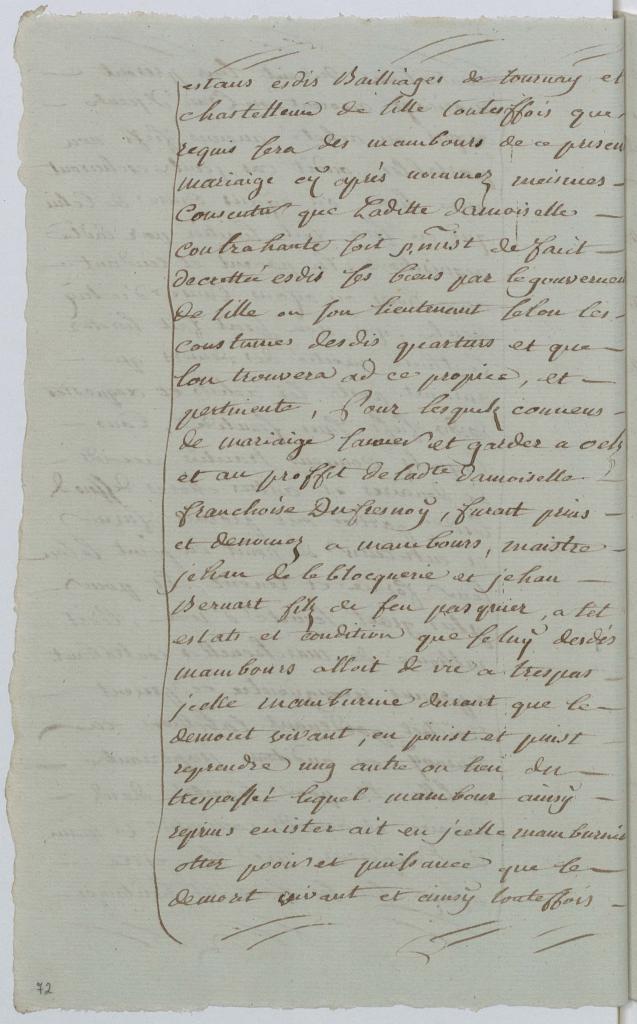 estans esdis Bailliages de tournay et
chastellenie de lille touteffois que
requis sera des mambours de ce presen
mariaige cy après nommez meismes -
Consentir que Laditte damoiselle -
contrahante soit de fait -
decrettée esdis les biens par le gouverneu
de lille ou son lieutenant selon les -
coustumes desdis quartiers et que -
lon trouvera ad ce propice, et -
pertinente, Pour lesquelz convens -
de mariaige sauver et garder a
et au proffit de ladte damoiselle
franchoise Dufresnoÿ, furent prins -
et denomez a mambours, maistre -
jehan de le blocquerie et jehan -
Bernart filz de feu pasquier, a tel
estats et condition que se luÿ desdis
mambours alloit de vie a trespas
jcelle mamburnie durant que le -
demorrt vivant, en penist et puist
reprendre ung autre ou lieu du -
trepassét lequel mambour ainsÿ -
reprins ait en jcelle mamburnie
otter pooir et puissance que le -
demorrt vivant et ainsÿ touteffois -
72